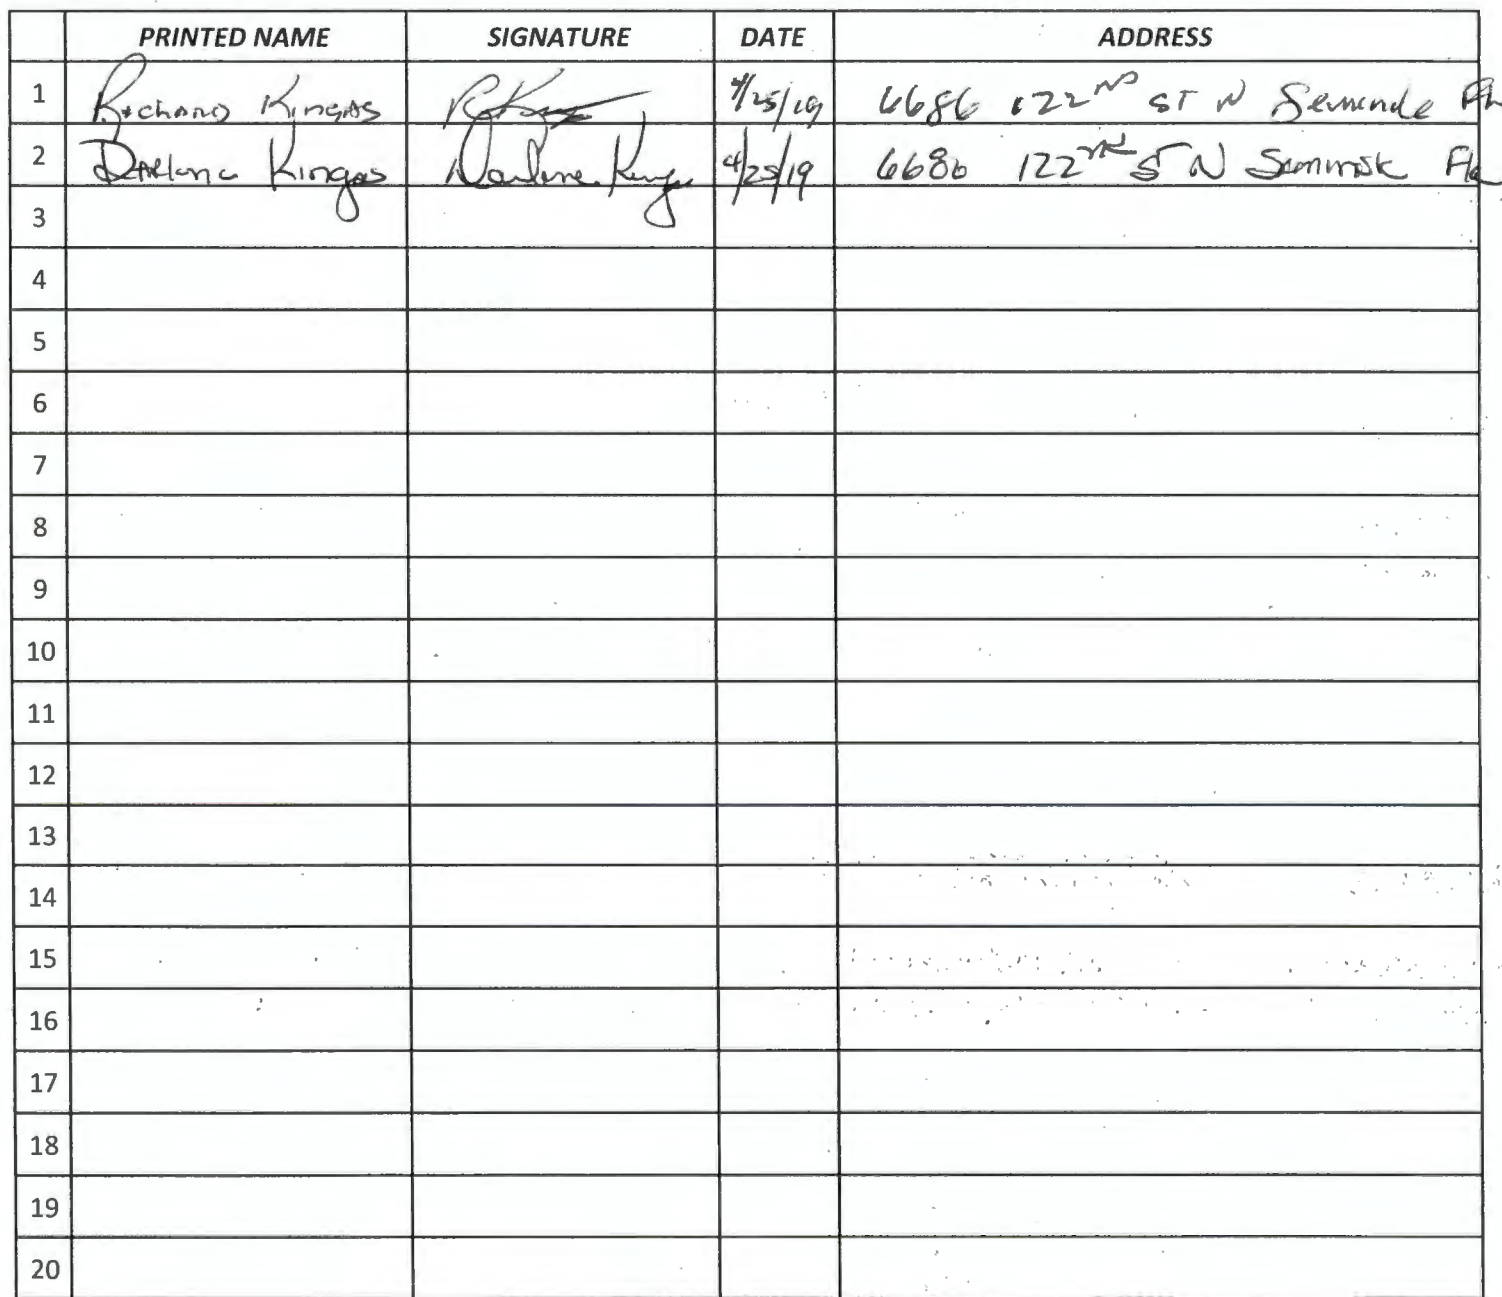 PRINTED NAME SIGNATURE DATE ADDRESS
1 Richard Kingas 4/25/19 6686 122ND ST N Seminole Fla
2 Darlene Kingas Darlene Kingas 4/25/19 6686 122nd ST N Seminole Fla
3
4
5
6
7
8
9
10
11
12
13
14
15
16
17
18
19
20